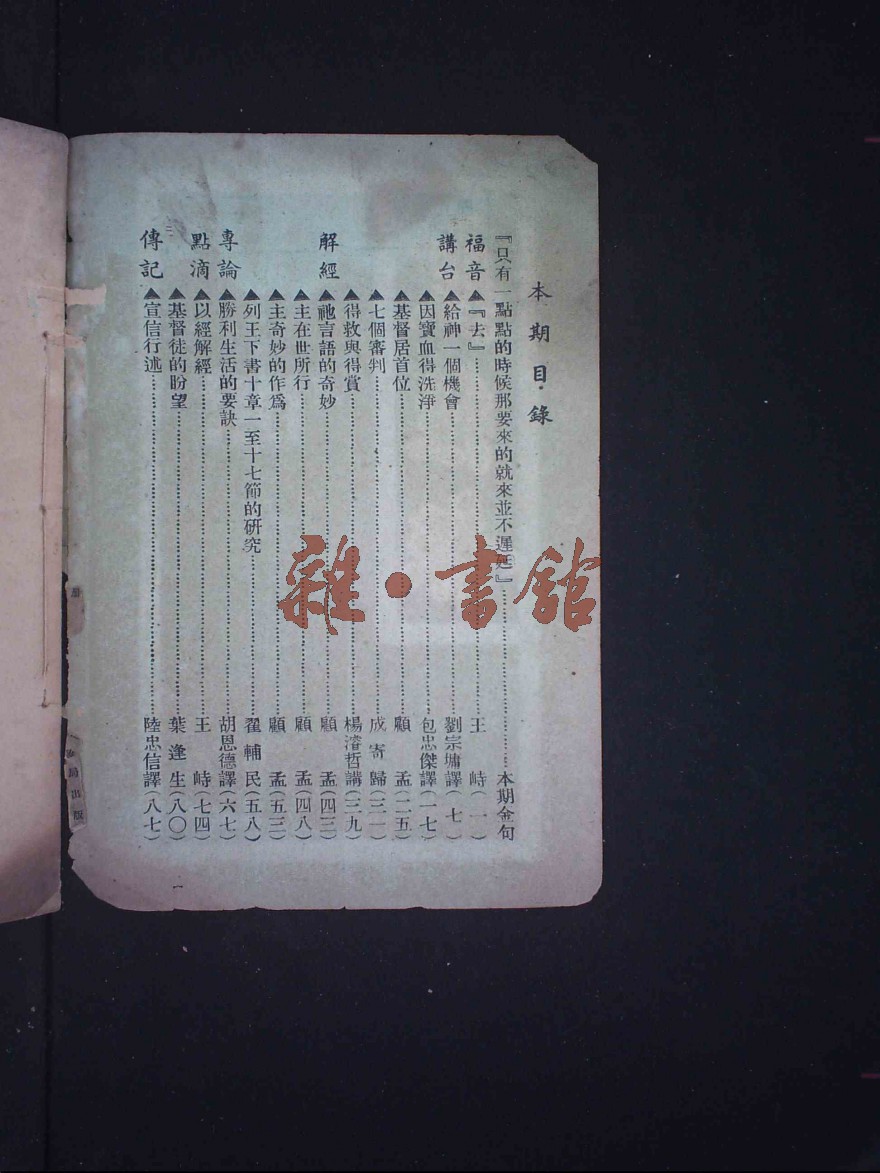 本期目錄
『只有一點點的時候那要來的就來並不遲延』……本期金句
福音 ▲『去』……王峙(一)
講台 ▲給神一個機會……劉宗墉譯(七)
▲因寶血得洗淨……包忠傑譯(一七)
▲基督居首位……顧孟(二五)
▲七個審判……成寄歸(三一)
▲得救與得賞……楊濬哲講(三九)
解經 ▲祂言語的奇妙……顧孟(四三)
▲主在世所行……顧孟(四八)
▲主奇妙的作爲……顧孟(五三)
▲列王下書十章一至十七節的研究……翟輔民(五八)
專論 ▲勝利生活的要訣……胡恩德譯(六七)
點滴 ▲以經解經……王峙(七四)
▲基督徒的盼望……葉逢生(八〇)
傳記 ▲宣信行述……陸忠信譯(八七)
雜·書館
出版